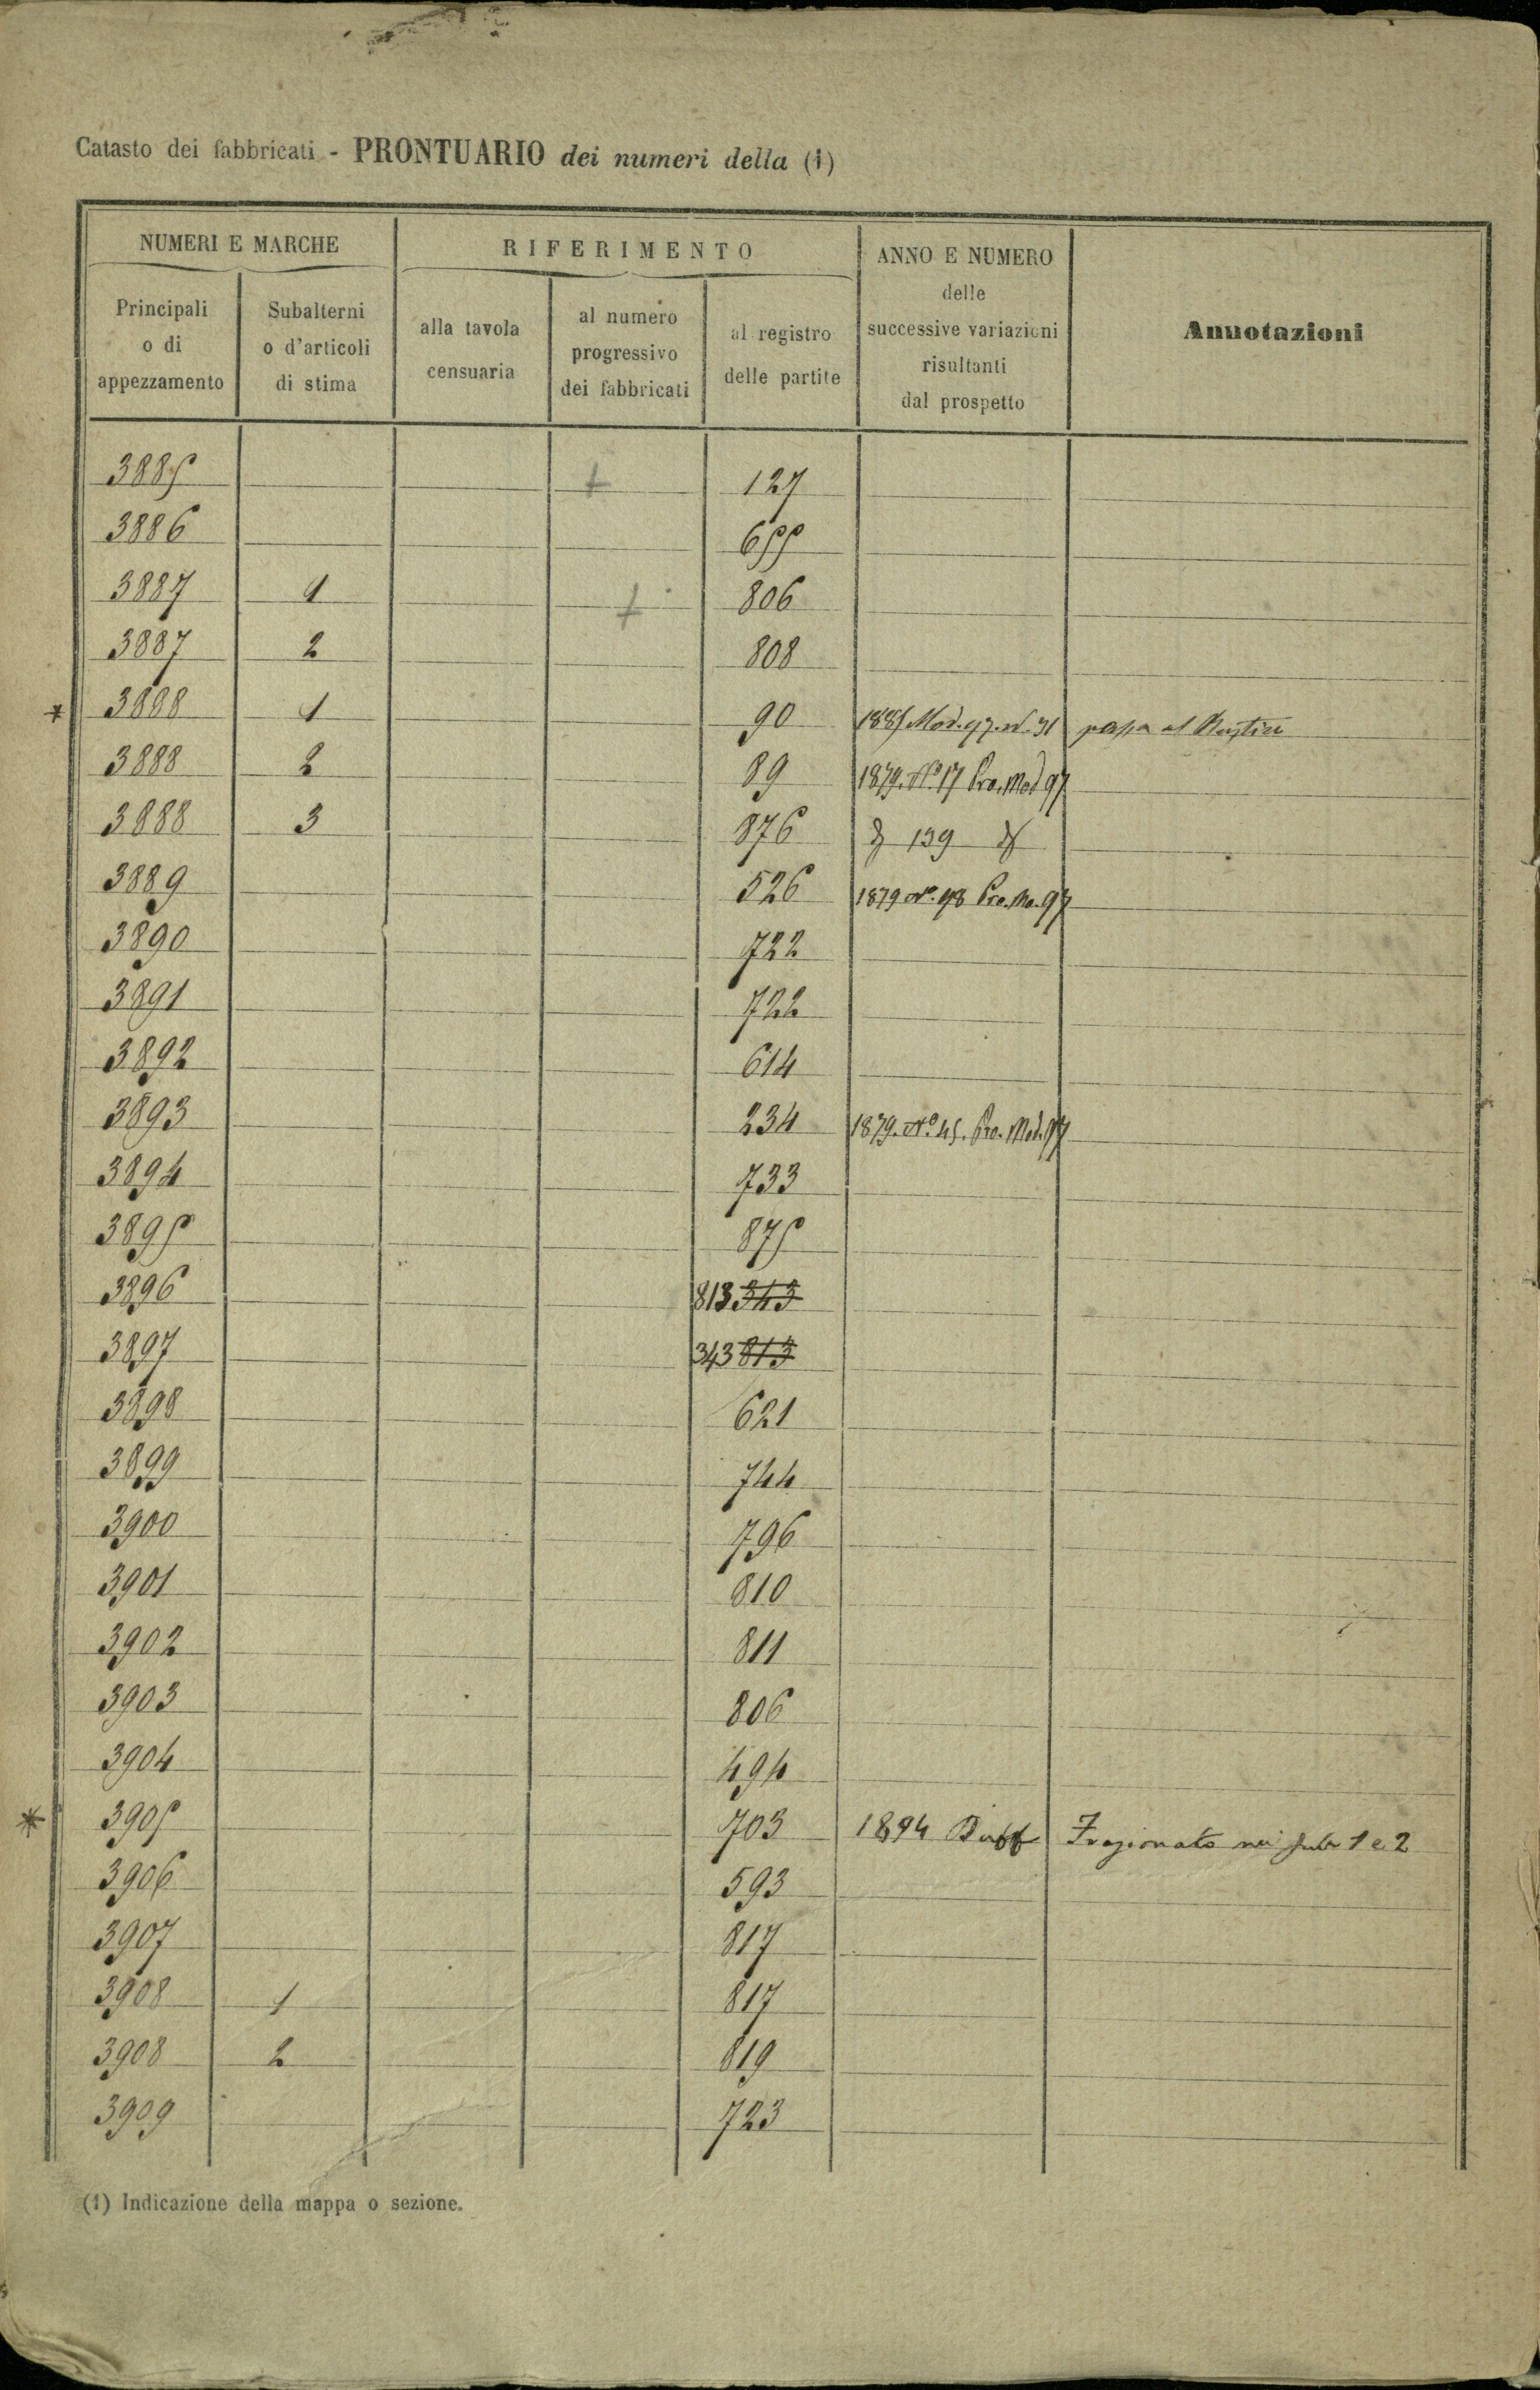 Catasto dei fabbricati - PRONTUARIO dei numeri della (1)
NUMERI E MARCHE RIFERIMENTO ANNO E NUMERO delle successive variazioni risultanti dal prospetto Annotazioni
Principali o di appezzamento Subalterni o d'articoli di stima alla tavola censuaria al numero progressivo dei fabbricati al registro delle partite
3885 + 127
3886 655
3887 1 + 806
3887 2 808
* 3888 1 90 1885 Mod. 97. N. 31 passa al Rustico
3888 2 89 1879. Nº 17 Pro. Mod 97
3888 3 876 139
3889 526 1879 Nº. 48 Pro. Mo. 97
3890 722
3891 722
3892 614
3893 234 1879. Nº 45. Pro. Mod. 97
3894 733
3895 875
3896 813 343
3897 343 813
3898 621
3899 744
3900 796
3901 810
3902 811
3903 806
3904 494
* 3905 703 1894 Frazionato nei sub 1 e 2
3906 593
3907 817
3908 1 817
3908 2 819
3909 723
(1) Indicazione della mappa o sezione.